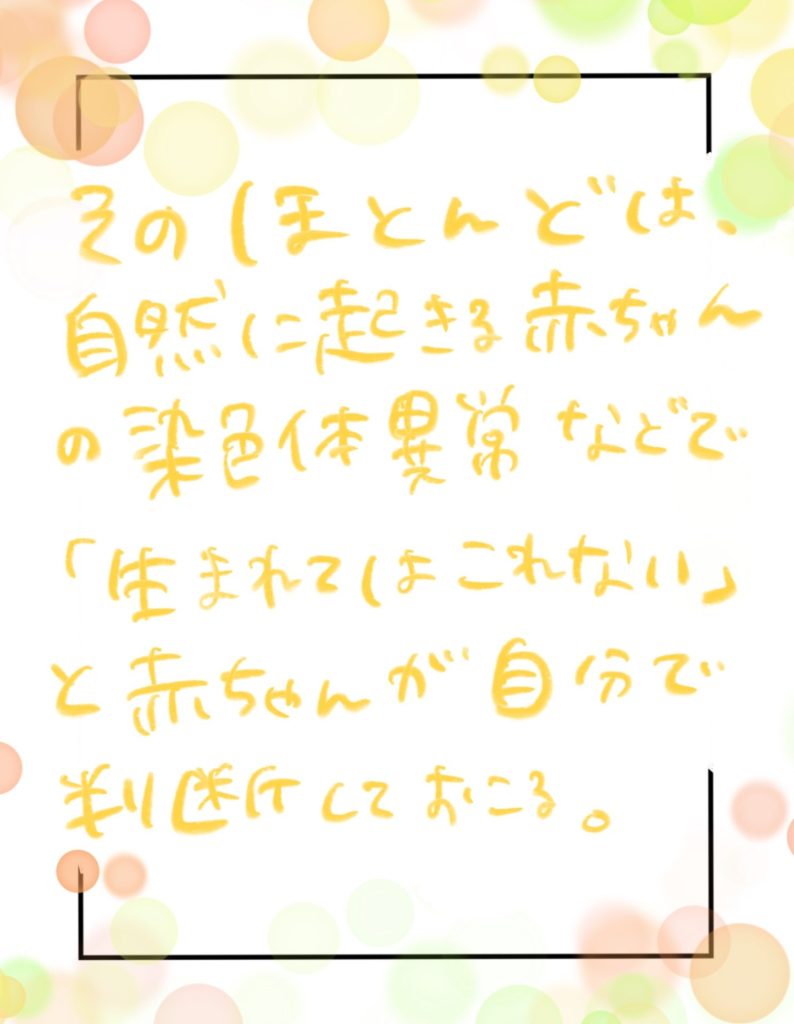 そのほとんどは、
自然に起きる赤ちゃん
の染色体異常などで
「生まれてはこれない」
と赤ちゃんが自分で
判断しておこる。